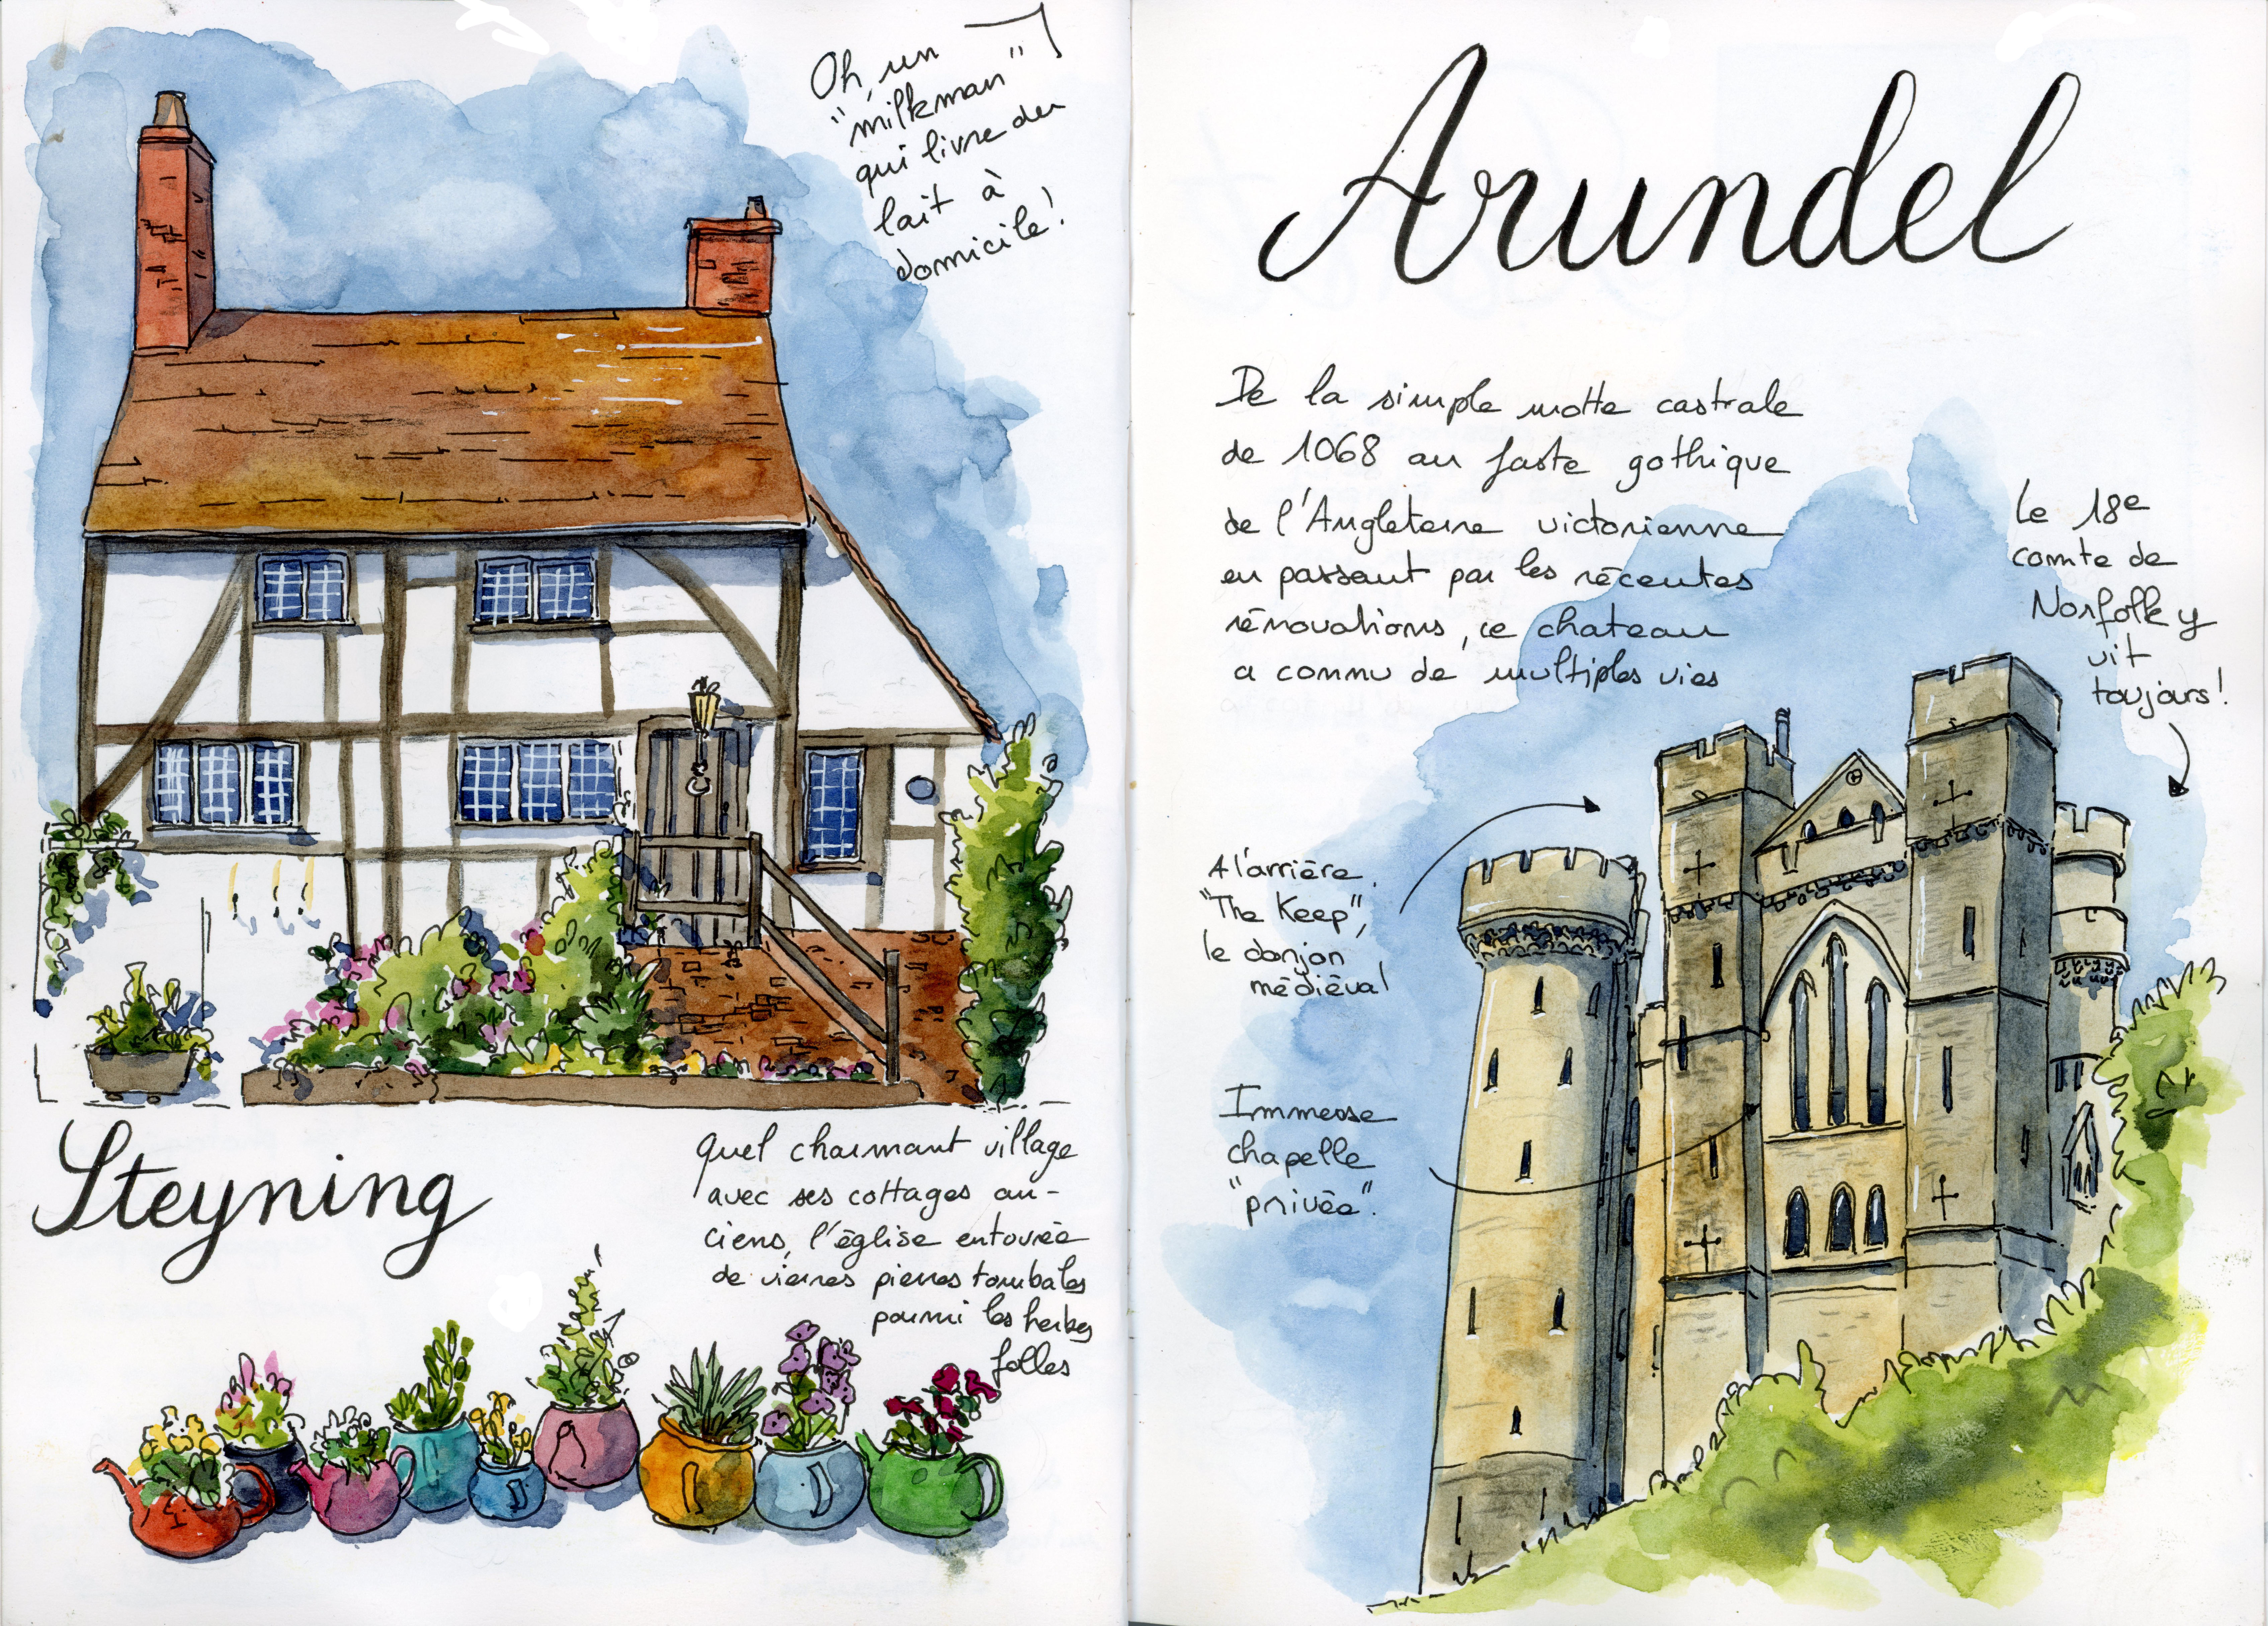 Oh, un
"milkman"
qui livre du
lait à
domicile!
Steyning
Quel charmant village
avec ses cottages an-
ciens, l'église entourée
de vieilles pierres tombales
parmi les herbes
folles
Arundel
De la simple motte castrale
de 1068 au faste gothique
de l'Angleterre victorienne
en passant par les récentes
rénovations, ce chateau
a connu de multiples vies
Le 18e
comte de
Norfolk y
vit
toujours!
A l'arrière
"The Keep",
le donjon
médiéval
Immense
chapelle
"privée".